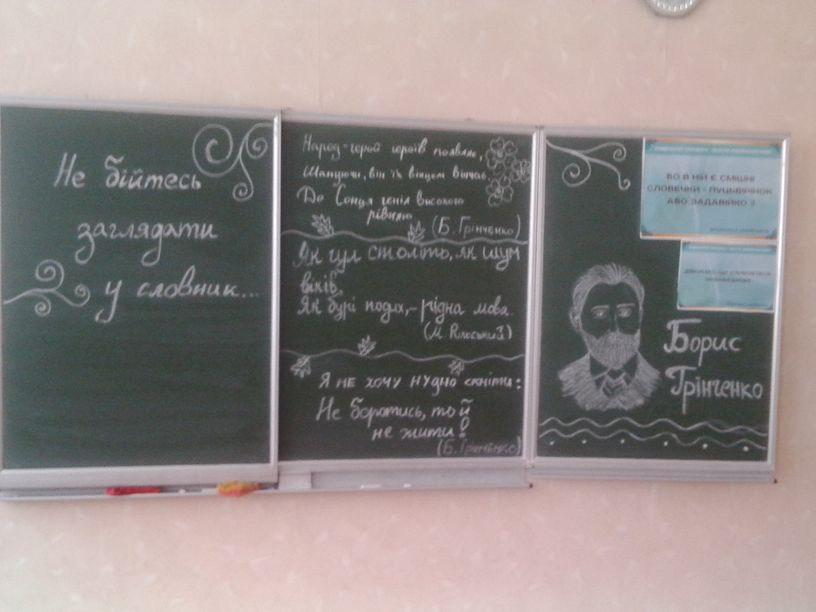 Не бійтесь
заглядати
у словник...
Народ-герой героїв появляє,
він їх вінцем вінчає.
До Сонця генія високого
рівняє
(Б. Грінченко)
Як гул століть, як шум
віків,
Як бурі подих,- рідна мова.
(М. Рильський)
Я не хочу нудно скніти:
Не боротись, то й
не жити!
(Б. Грінченко)
БО В НІЙ Є СМІШНІ
СЛОВЕЧКИ - ПУЦЬВІРІНОК
АБО ЗАДАВІЙКО :)
Борис
Грінченко